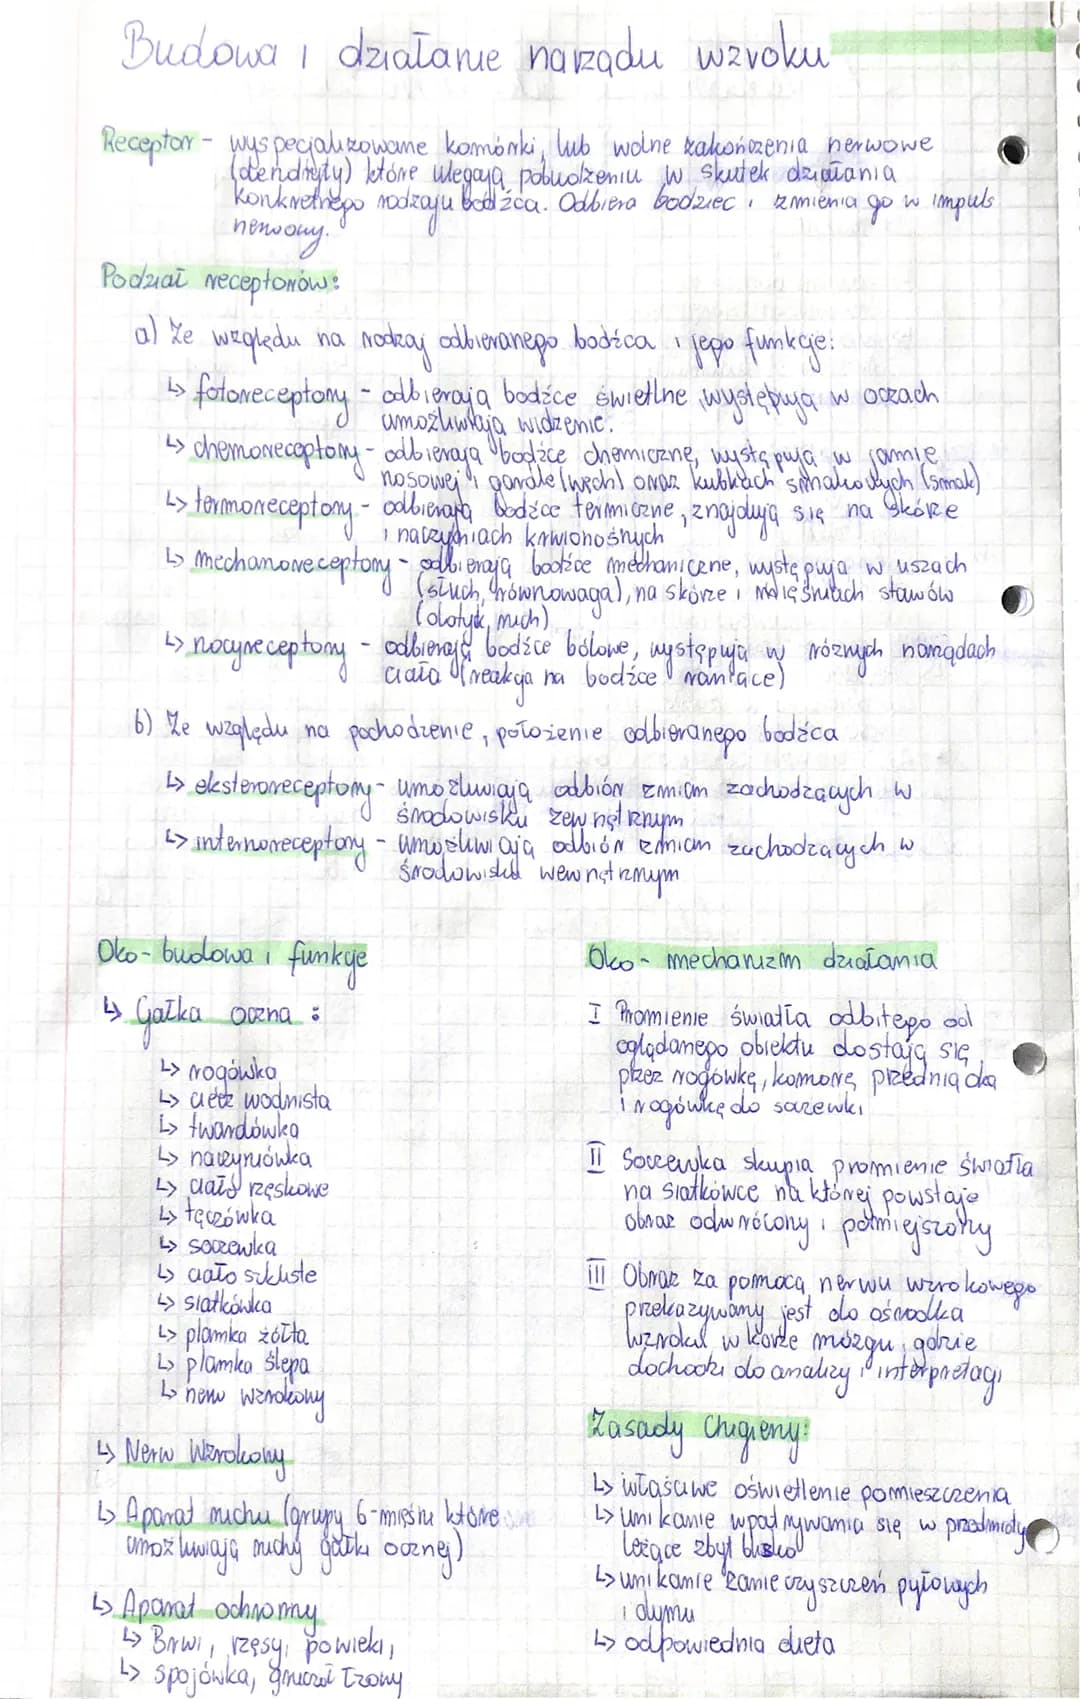 Budowa i działanie narządu wzroku
Receptor - wyspecjalizowane komórki, lub wolne zakończenia nerwowe
(dendryty) które ulegają pobudzeniu w skutek działania
konkretnego rodzaju bodźca. Odbiera bodziec i zmienia go w impuls
nerwowy.
Podział receptorów:
a) Ze względu na rodzaj odbieranego bodźca i jego funkcje:
↳ fotoreceptory - odbierają bodźce świetlne, występują w oczach
umożliwiają widzenie.
↳ chemoreceptory - odbierają bodźce chemiczne, występują w jamie
nosowej i gardle (węch) oraz kubkach smakowych (smak)
↳ termoreceptory - odbierają bodźce termiczne, znajdują się na skórze
i naczyniach krwionośnych
↳ mechanoreceptory - odbierają bodźce mechaniczne, występują w uszach
(słuch, równowaga), na skórze i mięśniach stawów
(dotyk, ruch)
↳ nocyreceptory - odbierają bodźce bólowe, występują w różnych narządach
ciała (reakcja na bodźce raniące)
b) Ze względu na pochodzenie, położenie odbieranego bodźca
↳ eksteroreceptory - umożliwiają odbiór zmian zachodzących w
środowisku zewnętrznym
↳ internoreceptory - umożliwiają odbiór zmian zachodzących w
środowisku wewnętrznym
Oko - budowa i funkcje
↳ Gałka oczna :
↳ rogówka
↳ ciecz wodnista
↳ twardówka
↳ naczyniówka
↳ ciało rzęskowe
↳ tęczówka
↳ soczewka
↳ ciało szkliste
↳ siatkówka
↳ plamka żółta
↳ plamka ślepa
↳ nerw wzrokowy
↳ Nerw Wzrokowy
↳ Aparat ruchu (grupy 6-mięśni które
umożliwiają ruchy gałki ocznej)
↳ Aparat ochronny
↳ Brwi, rzęsy, powieki,
↳ spojówka, gruczoł łzowy
Oko - mechanizm działania
I Promienie światła odbitego od
oglądanego obiektu dostają się
przez rogówkę, komorę przednią oka
i rogówkę do soczewki
II Soczewka skupia promienie światła
na siatkówce na której powstaje
obraz odwrócony i pomniejszony
III Obraz za pomocą nerwu wzrokowego
przekazywany jest do ośrodka
wzroku w korze mózgu, gdzie
dochodzi do analizy i interpretacji
Zasady higieny:
↳ właściwe oświetlenie pomieszczenia
↳ unikanie wpatrywania się w przedmioty
leżące zbyt blisko
↳ unikanie zanieczyszczeń pyłowych
i dymu
↳ odpowiednia dieta